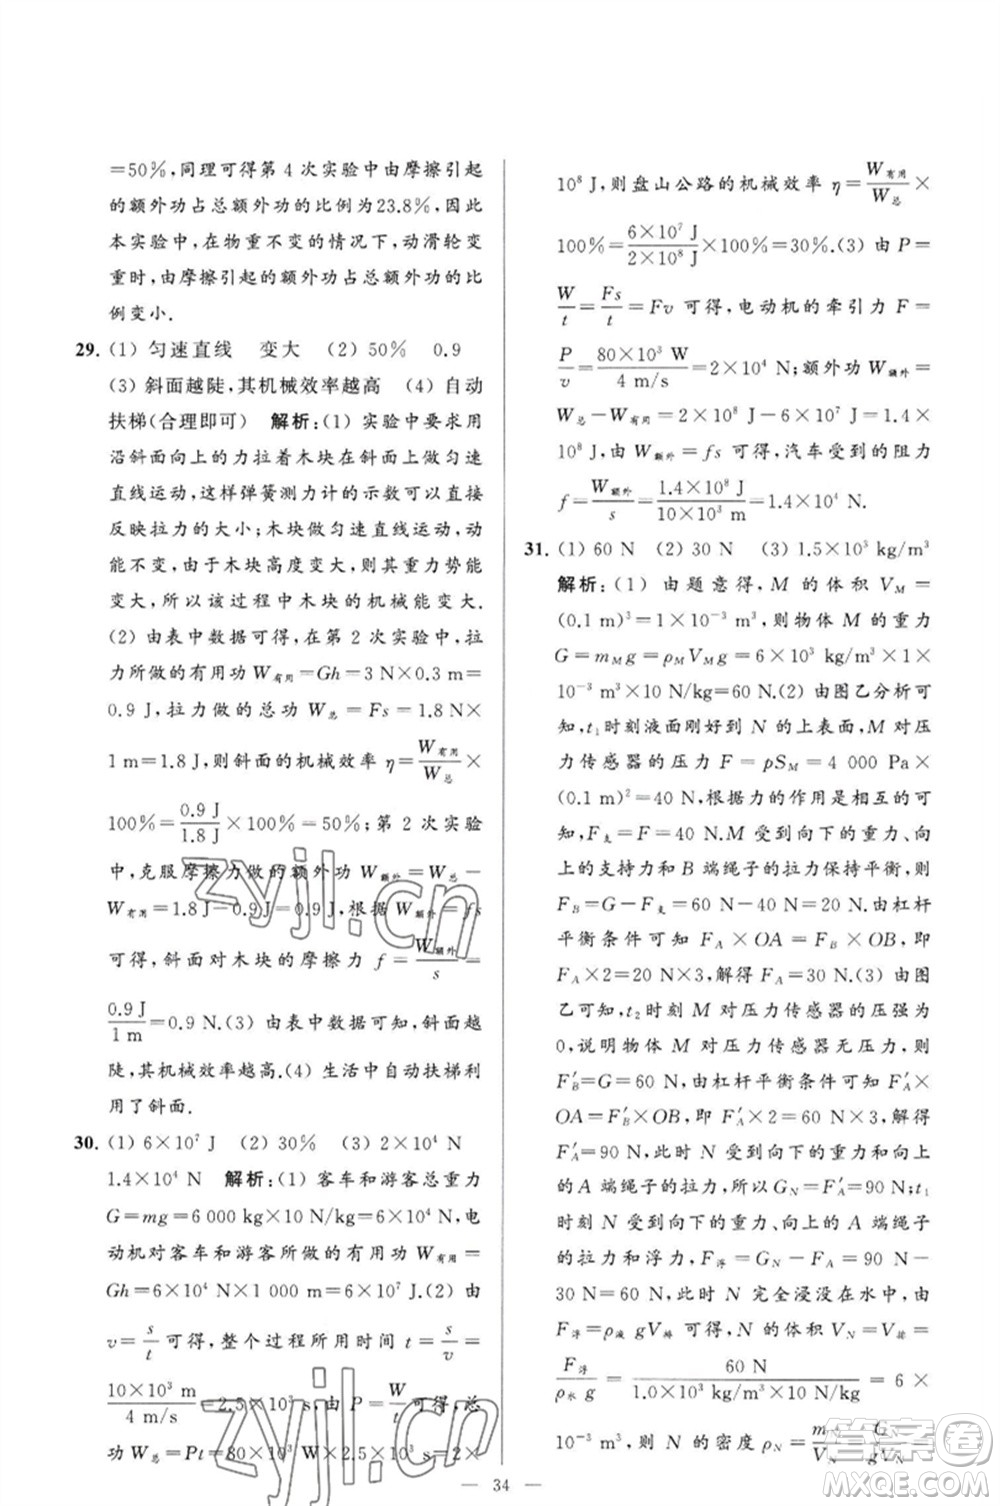 =50%,同理可得第 4 次实验中由摩擦引起
的额外功占总额外功的比例为23.8%,因此
本实验中,在物重不变的情况下,动滑轮变
重时,由摩擦引起的额外功占总额外功的比
例变小.
29. (1) 匀速直线 变大 (2) 50% 0.9
(3) 斜面越陡,其机械效率越高 (4) 自动
扶梯(合理即可) 解析:(1) 实验中要求用
沿斜面向上的力拉着木块在斜面上做匀速
直线运动,这样弹簧测力计的示数可以直接
反映拉力的大小;木块做匀速直线运动,动
能不变,由于木块高度变大,其重力势能
变大,所以该过程中木块的机械能变大.
(2) 由表中数据可得,在第 2 次实验中,拉
力所做的有用功 W有用=Gh=3 N×0.3 m=
0.9 J,拉力做的总功 W总=Fs=1.8 N×
1 m=1.8 J,则斜面的机械效率 η=W有用/W总×
100%=0.9 J/1.8 J×100%=50%;第 2 次实验
中,克服摩擦力做的额外功 W额外=W总-
W有用=1.8 J-0.9 J=0.9 J,根据 W额外=fs
可得,斜面对木块的摩擦力 f=W额外/s=
0.9 J/1 m=0.9 N.(3) 由表中数据可知,斜面越
陡,其机械效率越高.(4) 生活中自动扶梯利
用了斜面.
30. (1) 6×10⁷ J (2) 30% (3) 2×10⁴ N
1.4×10⁴ N 解析:(1) 客车和游客总重力
G=mg=6 000 kg×10 N/kg=6×10⁴ N,电
动机对客车和游客所做的有用功 W有用=
Gh=6×10⁴ N×1 000 m=6×10⁷ J.(2) 由
v=s/t可得,整个过程所用时间 t=s/v=
10×10³ m/4 m/s=2.5×10³ s,由 P=W/t可得,总
功 W总=Pt=80×10³ W×2.5×10³ s=2×
10⁸ J,则盘山公路的机械效率 η=W有用/W总×
100%=6×10⁷ J/2×10⁸ J×100%=30%.(3) 由 P=
W/t=Fs/t=Fv 可得,电动机的牵引力 F=
P/v=80×10³ W/4 m/s=2×10⁴ N;额外功 W额外=
W总-W有用=2×10⁸ J-6×10⁷ J=1.4×
10⁸ J,由 W额外=fs 可得,汽车受到的阻力
f=W额外/s=1.4×10⁸ J/10×10³ m=1.4×10⁴ N.
31. (1) 60 N (2) 30 N (3) 1.5×10³ kg/m³
解析:(1) 由题意得,M 的体积 V_M=
(0.1 m)³=1×10⁻³ m³,则物体 M 的重力
G=m_M g=ρ_M V_M g=6×10³×1×
10⁻³ m³×10 N/kg=60 N.(2) 由图乙分析可
知,t₁时刻液面刚好到 N 的上表面,M 对压
力传感器的压力 F=pS_M=4 000 Pa×
(0.1 m)²=40 N,根据力的作用是相互的可
知,F支=F=40 N.M 受到向下的重力、向
上的支持力和 B 端绳子的拉力保持平衡,则
F_B=G-F支=60 N-40 N=20 N,由杠杆
平衡条件可知 F_A×OA=F_B×OB,即
F_A×2=20 N×3,解得 F_A=30 N.(3) 由图
乙可知,t₂时刻 M 对压力传感器的压强为
0,说明物体 M 对压力传感器无压力,则
F′_B=G=60 N,由杠杆平衡条件可知 F′_A×
OA=F′_B×OB,即 F′_A×2=60 N×3,解得
F′_A=90 N,此时 N 受到向下的重力与向上
的 A 端绳子的拉力,所以 G_N=F′_A=90 N;t₁
时刻 N 受到向下的重力、向上的 A 端绳子
的拉力和浮力,F浮=G_N-F_A=90 N-
30 N=60 N,此时 N 完全浸没在水中,由
F浮=ρ液gV排 可得,N 的体积 V_N=V排=
F浮/ρ水g=60 N/1.0×10³ kg/m³×10 N/kg=6×
10⁻³ m³,则 N 的密度 ρ_N=m_N/V_N=G_N/gV_N=
— 34 —
zyjl.cn
zyjl.cn
答案圈
MXQE.COM